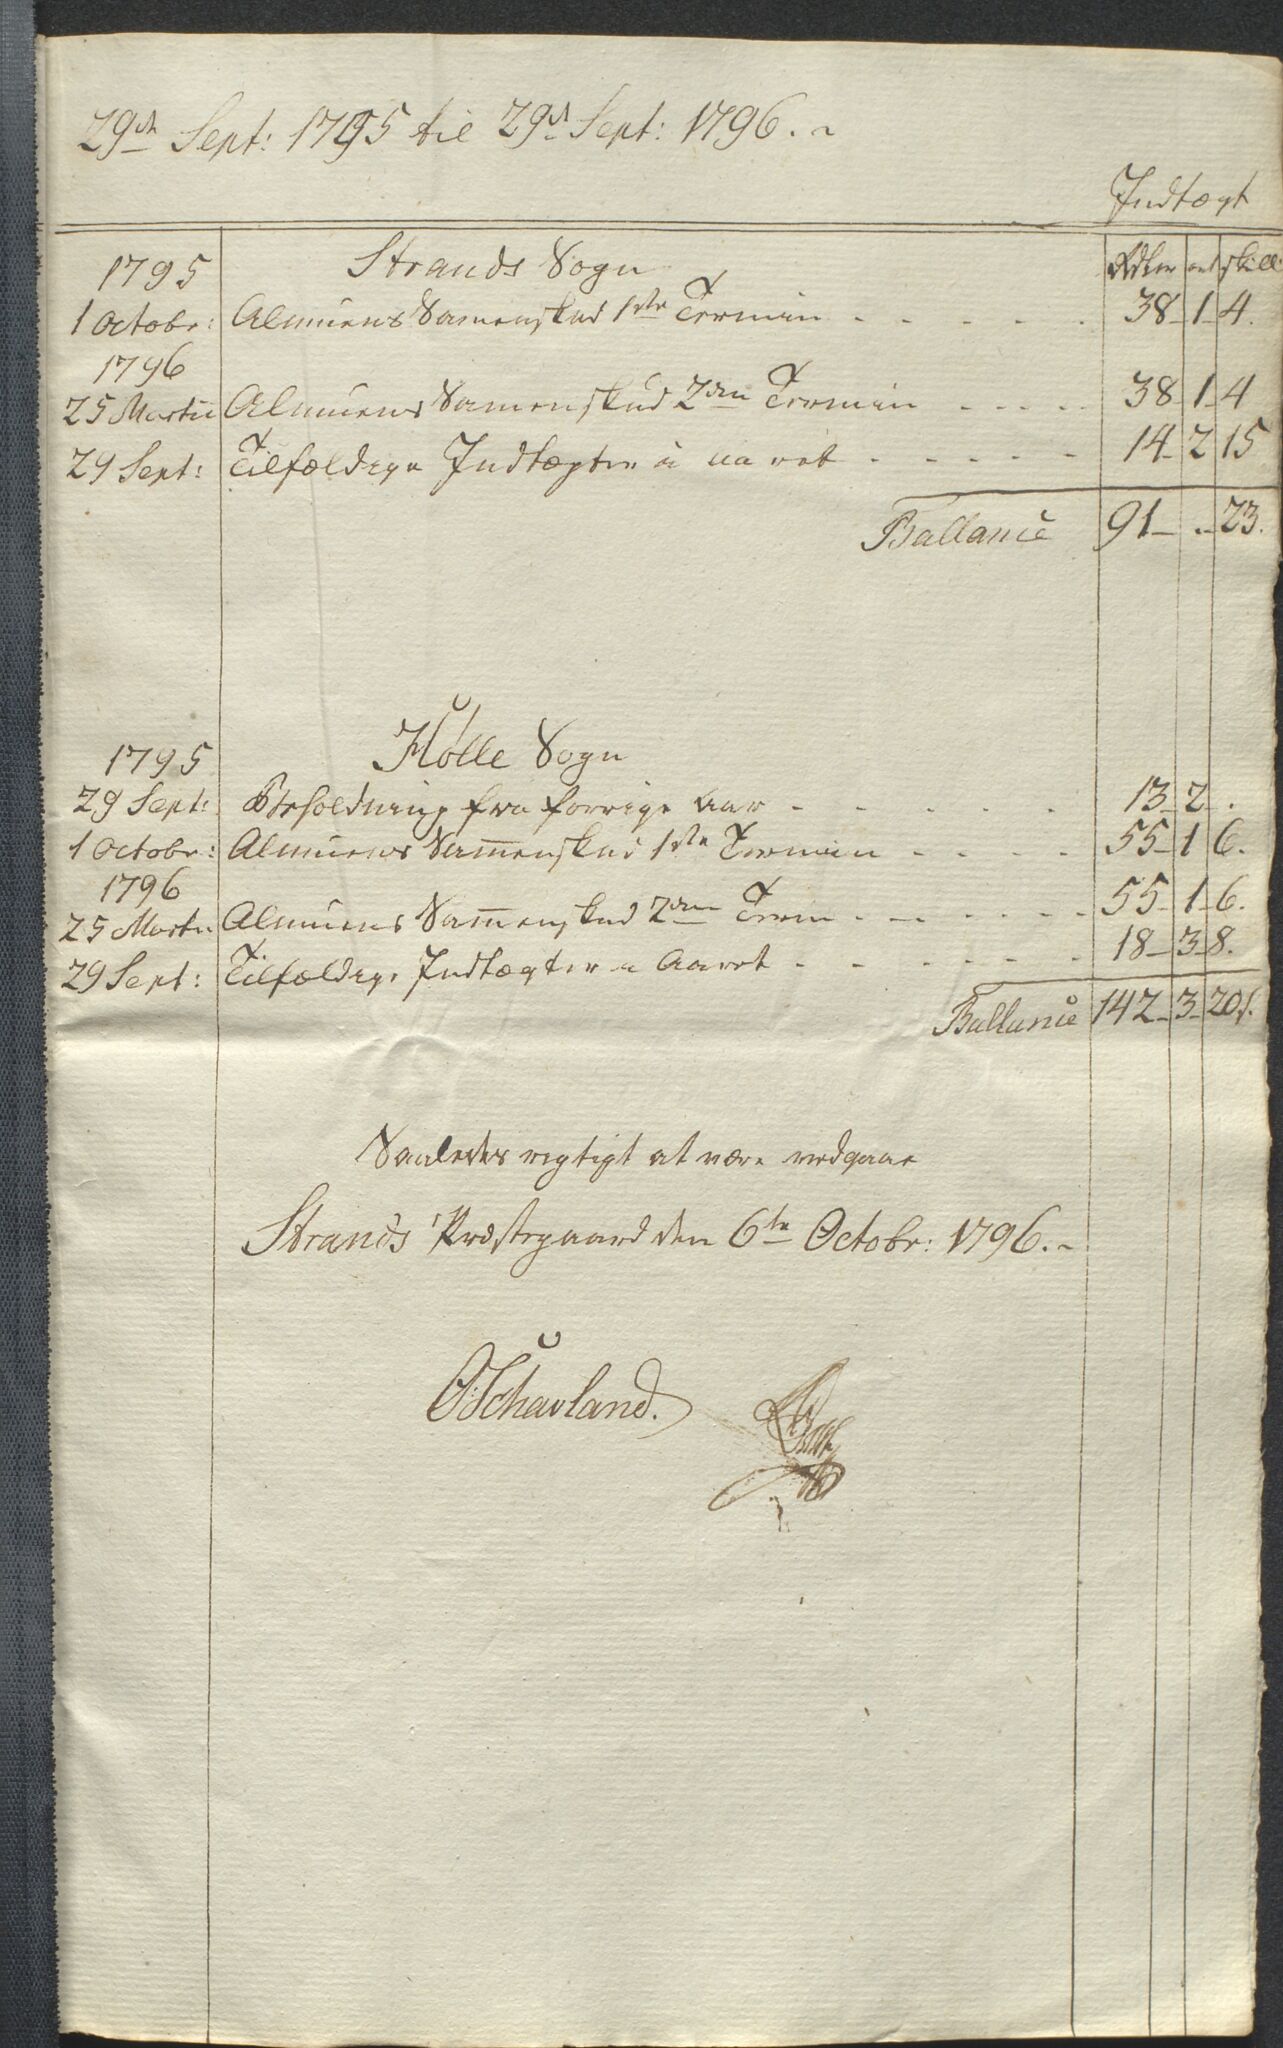 29de Sept: 1795 til 29de Sept: 1796.
Indtægt
1795 Strands Sogn Rdler ort skill
1 Octobr: Almuens Samenskud 1ste Termin - - - - - 38 - 1 - 4.
1796
25 Martii Almuens Samenskud 2den Termin - - - - - 38 - 1 - 4
29 Sept: Tilfældige Indtægter i aaret - - - - - 14 - 2 15
Ballance 91 - .. - 23.
1795 Hölle Sogn
29 Sept: Beholdning fra forrige Aar - - - - - 13 - 2 .
1 Octobr: Almuens Sam̅enskud 1ste Termin - - - - 55 - 1 6.
1796
25 Marti: Almuens Sam̅enskud 2den Term - - - - - - 55 - 1 - 6.
29 Sept: Tilfældige Indtægter i Aaret - - - - - - 18 - 3 - 8.
Ballance 142 - 3 - 20s.
Saaledes rigtigt at være vedgaae
Strands Præstegaard den 6te Octobr: 1796.
O Schavland.